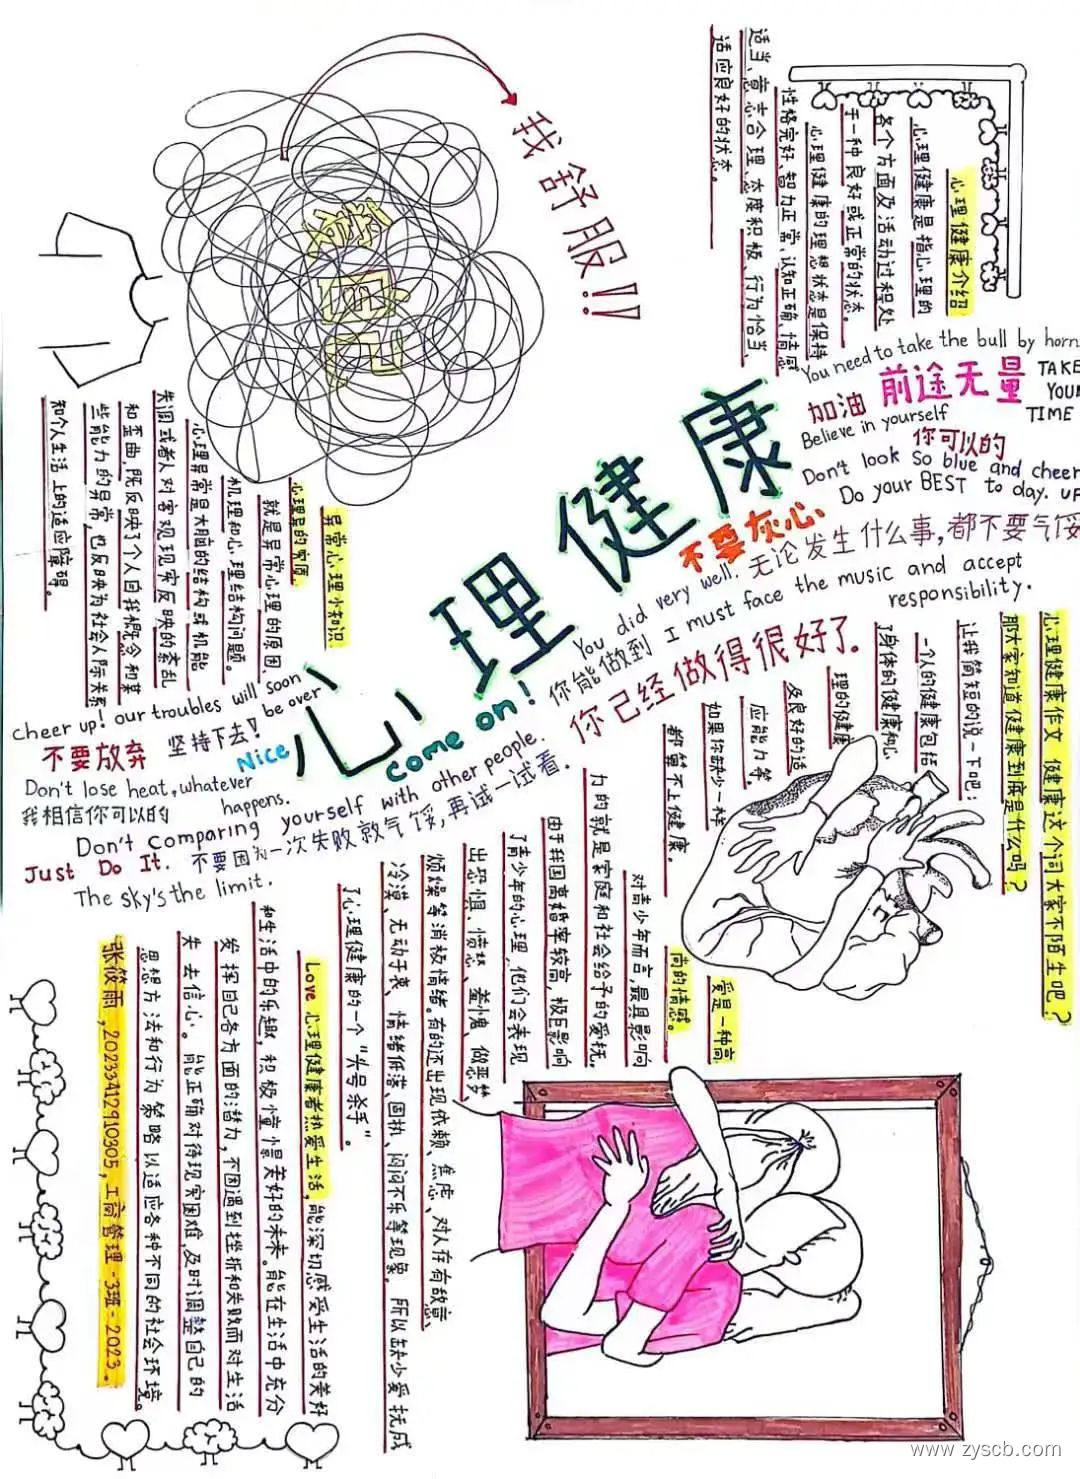 心理健康
我舒服!!
心理健康介绍
心理健康是指心理的
各个方面及活动过程处
于一种良好或正常的状态。
心理健康的理想状态是保持
性格完好、智力正常、认知正确、情感
适当、意志合理、态度积极、行为恰当、
适应良好的状态。
You need to take the bull by horn
前途无量
TAKE
YOUR
TIME
加油
Believe in yourself
你可以的
Don't look so blue and cheer
UP
Do your BEST to day.
不要灰心
无论发生什么事,都不要气馁
You did very well.
I must face the music and accept
responsibility.
你能做到
你已经做得很好了.
come on!
异常心理小知识
就是异常心理的原因、
机理和心理结构问题。
心理异常是大脑的结构或机能
失调或者人对客观现实反映的紊乱
和歪曲,既反映了个人自我概念和某
些能力的异常,也反映为社会人际关系
和个人生活上的适应障碍。
cheer up! our troubles will soon
be over
不要放弃
坚持下去!
Nice
Don't lose heat, whatever
happens.
我相信你可以的
Don't comparing yourself with other people.
Just Do It.
不要因为一次失败就气馁,再试一试看.
The sky's the limit.
心理健康作文 健康这个词大家不陌生吧?
那大家知道健康到底是什么吗?
让我简短的说一下吧:
一个人的健康包括
了身体的健康和心
理的健康
及良好的适
应能力等
如果你缺少一样
都算不上健康。
爱是一种高
尚的情感。
对青少年而言,最具影响
力的就是家庭和社会给予的爱抚。
由于我国离婚率较高,极巨影响
了青少年的心理,他们会表现
出恐惧、愤怒、羞愧、做恶梦
烦躁等消极情绪。有的还出现依赖、焦虑、对人存有敌意
冷漠、无动于衷、情绪低落、固执、闷闷不乐等现象。所以缺少爱抚成
了心理健康的一个"头号杀手"。
Love 心理健康者热爱生活,能深切感受生活的美好
和生活中的乐趣,积极憧憬美好的未来。能在生活中充分
发挥自己各方面的潜力,不因遇到挫折和失败而对生活
失去信心。能正确对待现实困难,及时调整自己的
思想方法和行为策略以适应各种不同的社会环境。
张筱雨,20233412910305,工商管理-3班-2023.
www.zyscb.com